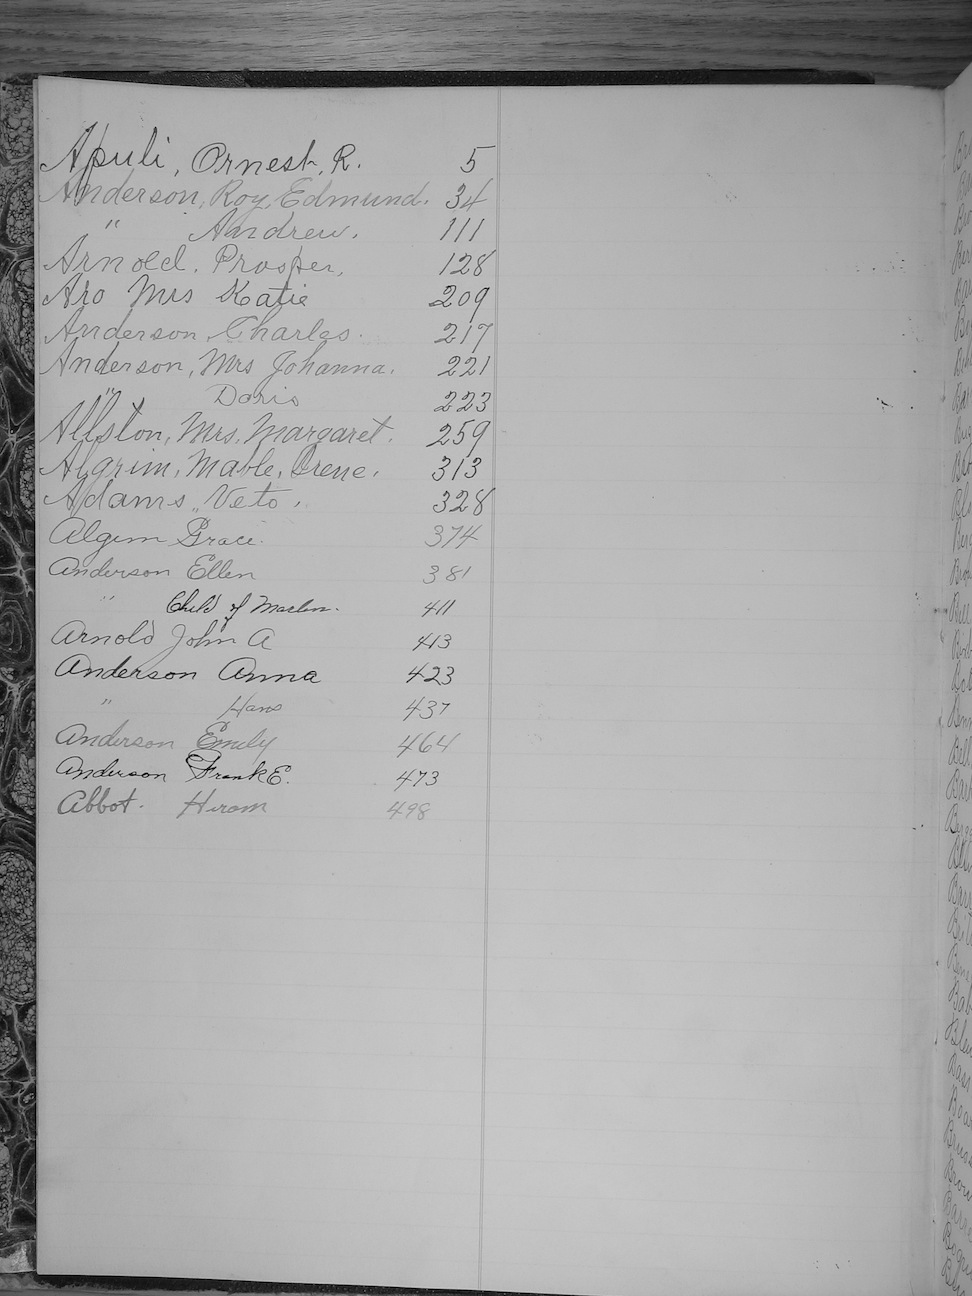 Apuli, Ornest, R. 5
Anderson, Roy, Edmund. 34
" Aandrew. 111
Arnold, Prosper, 128
Aro Mrs Katie 209
Anderson, Charles. 217
Anderson, Mrs Johanna. 221
" Doris 223
Allston, Mrs, Margaret. 259
Algrim, Mable, Irene. 313
Adams, Veto, 328
Algem Grace. 374
Anderson Ellen 381
" Child of 411
Arnold John A 413
Anderson Anna 423
" Hans 437
Anderson Emily 464
Anderson Frank E. 473
Abbot. Hiram 498